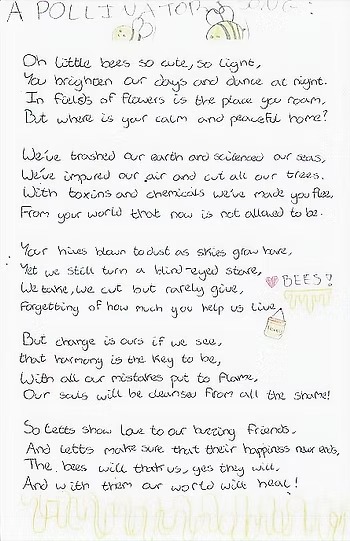 A POLLINATORS SONG:
Oh little bees so cute, so light,
You brighten our days and dance at night.
In fields of flowers is the place you roam,
But where is your calm and peaceful home?
We've trashed our earth and scilenced our seas,
We've impured our air and cut all our trees.
With toxins and chemicals we've made you flee,
From your world that now is not allowed to be.
Your hives blown to dust as skies grow bare,
Yet we still turn a blind-eyed stare,
We take, we cut but rarely give,
Forgetting of how much you help us live.
BEES?
But change is ours if we see,
that harmony is the key to be,
With all our mistakes put to flame,
Our souls will be cleansed from all the shame!
So letts show love to our buzzing friends,
And letts make sure that their happiness never ends,
The bees will thank us, yes they will,
And with them our world will heal!